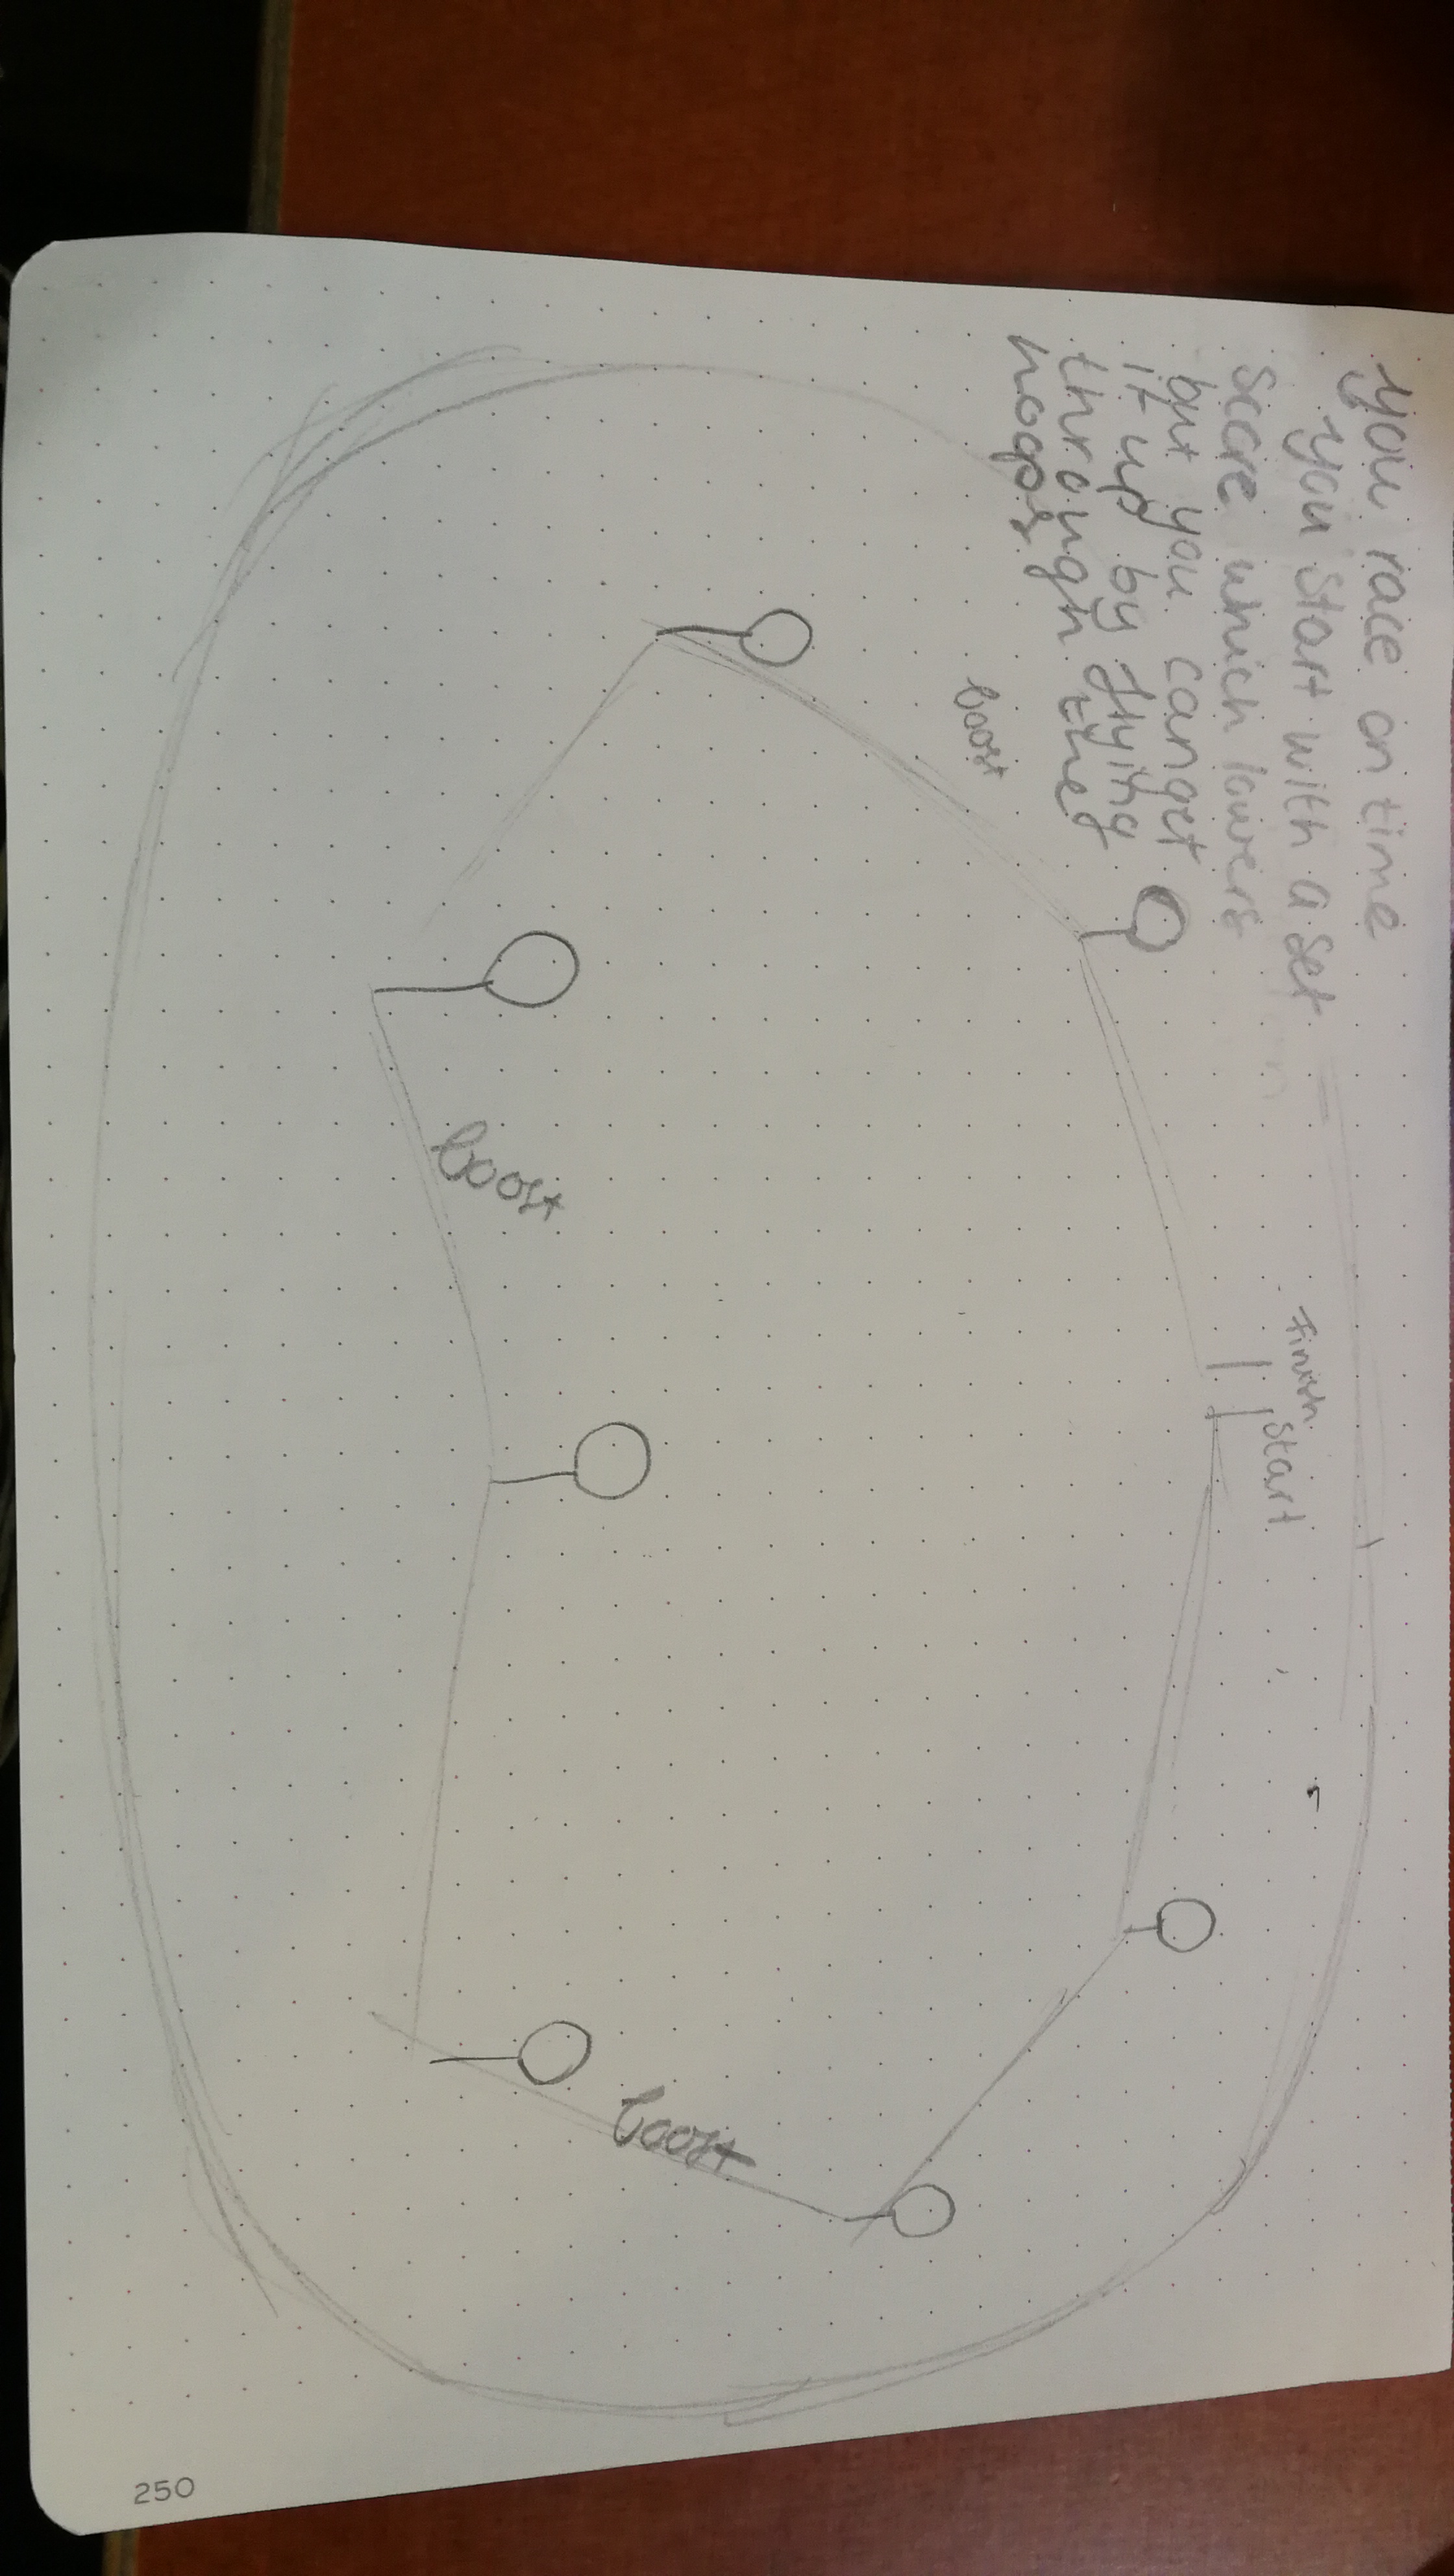 you race on time
you start with a set
score which lowers
but you can get
it up by flying
through the
hoops.
boost
Finish
Start
boost
boost
250